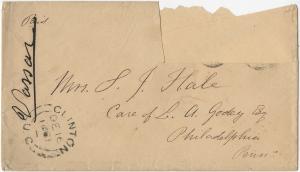 Paid
Vassar
CLINTON
DEC 16
Mrs. S. J. Hale
Care of L. A. Godey Esq
Philadelphia
Penn